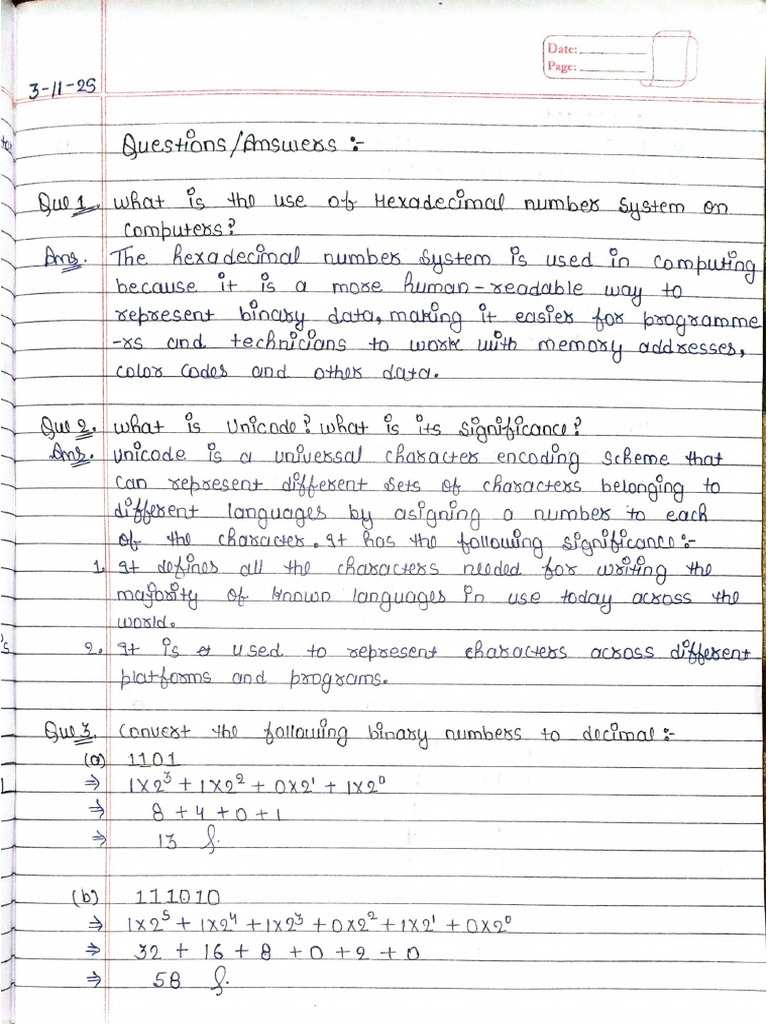 Date:
Page:
3-11-25
Questions/Answers :-
Que 1. What is the use of Hexadecimal number system on
computers?
Ans. The hexadecimal number system is used in computing
because it is a more human-readable way to
represent binary data, making it easier for programme
-rs and technicians to work with memory addresses,
color codes and other data.
Que 2. What is Unicode? What is its significance?
Ans. Unicode is a universal character encoding scheme that
can represent different sets of characters belonging to
different languages by asigning a number to each
of the character. It has the following significance:-
1. It defines all the characters needed for writing the
majority of known languages in use today across the
world.
2. It is used to represent characters across different
platforms and programs.
Que 3. Convert the following binary numbers to decimal:-
(a) 1101
⇒ 1×2³ + 1×2² + 0×2¹ + 1×2⁰
⇒ 8 + 4 + 0 + 1
⇒ 13
(b) 111010
⇒ 1×2⁵ + 1×2⁴ + 1×2³ + 0×2² + 1×2¹ + 0×2⁰
⇒ 32 + 16 + 8 + 0 + 2 + 0
⇒ 58